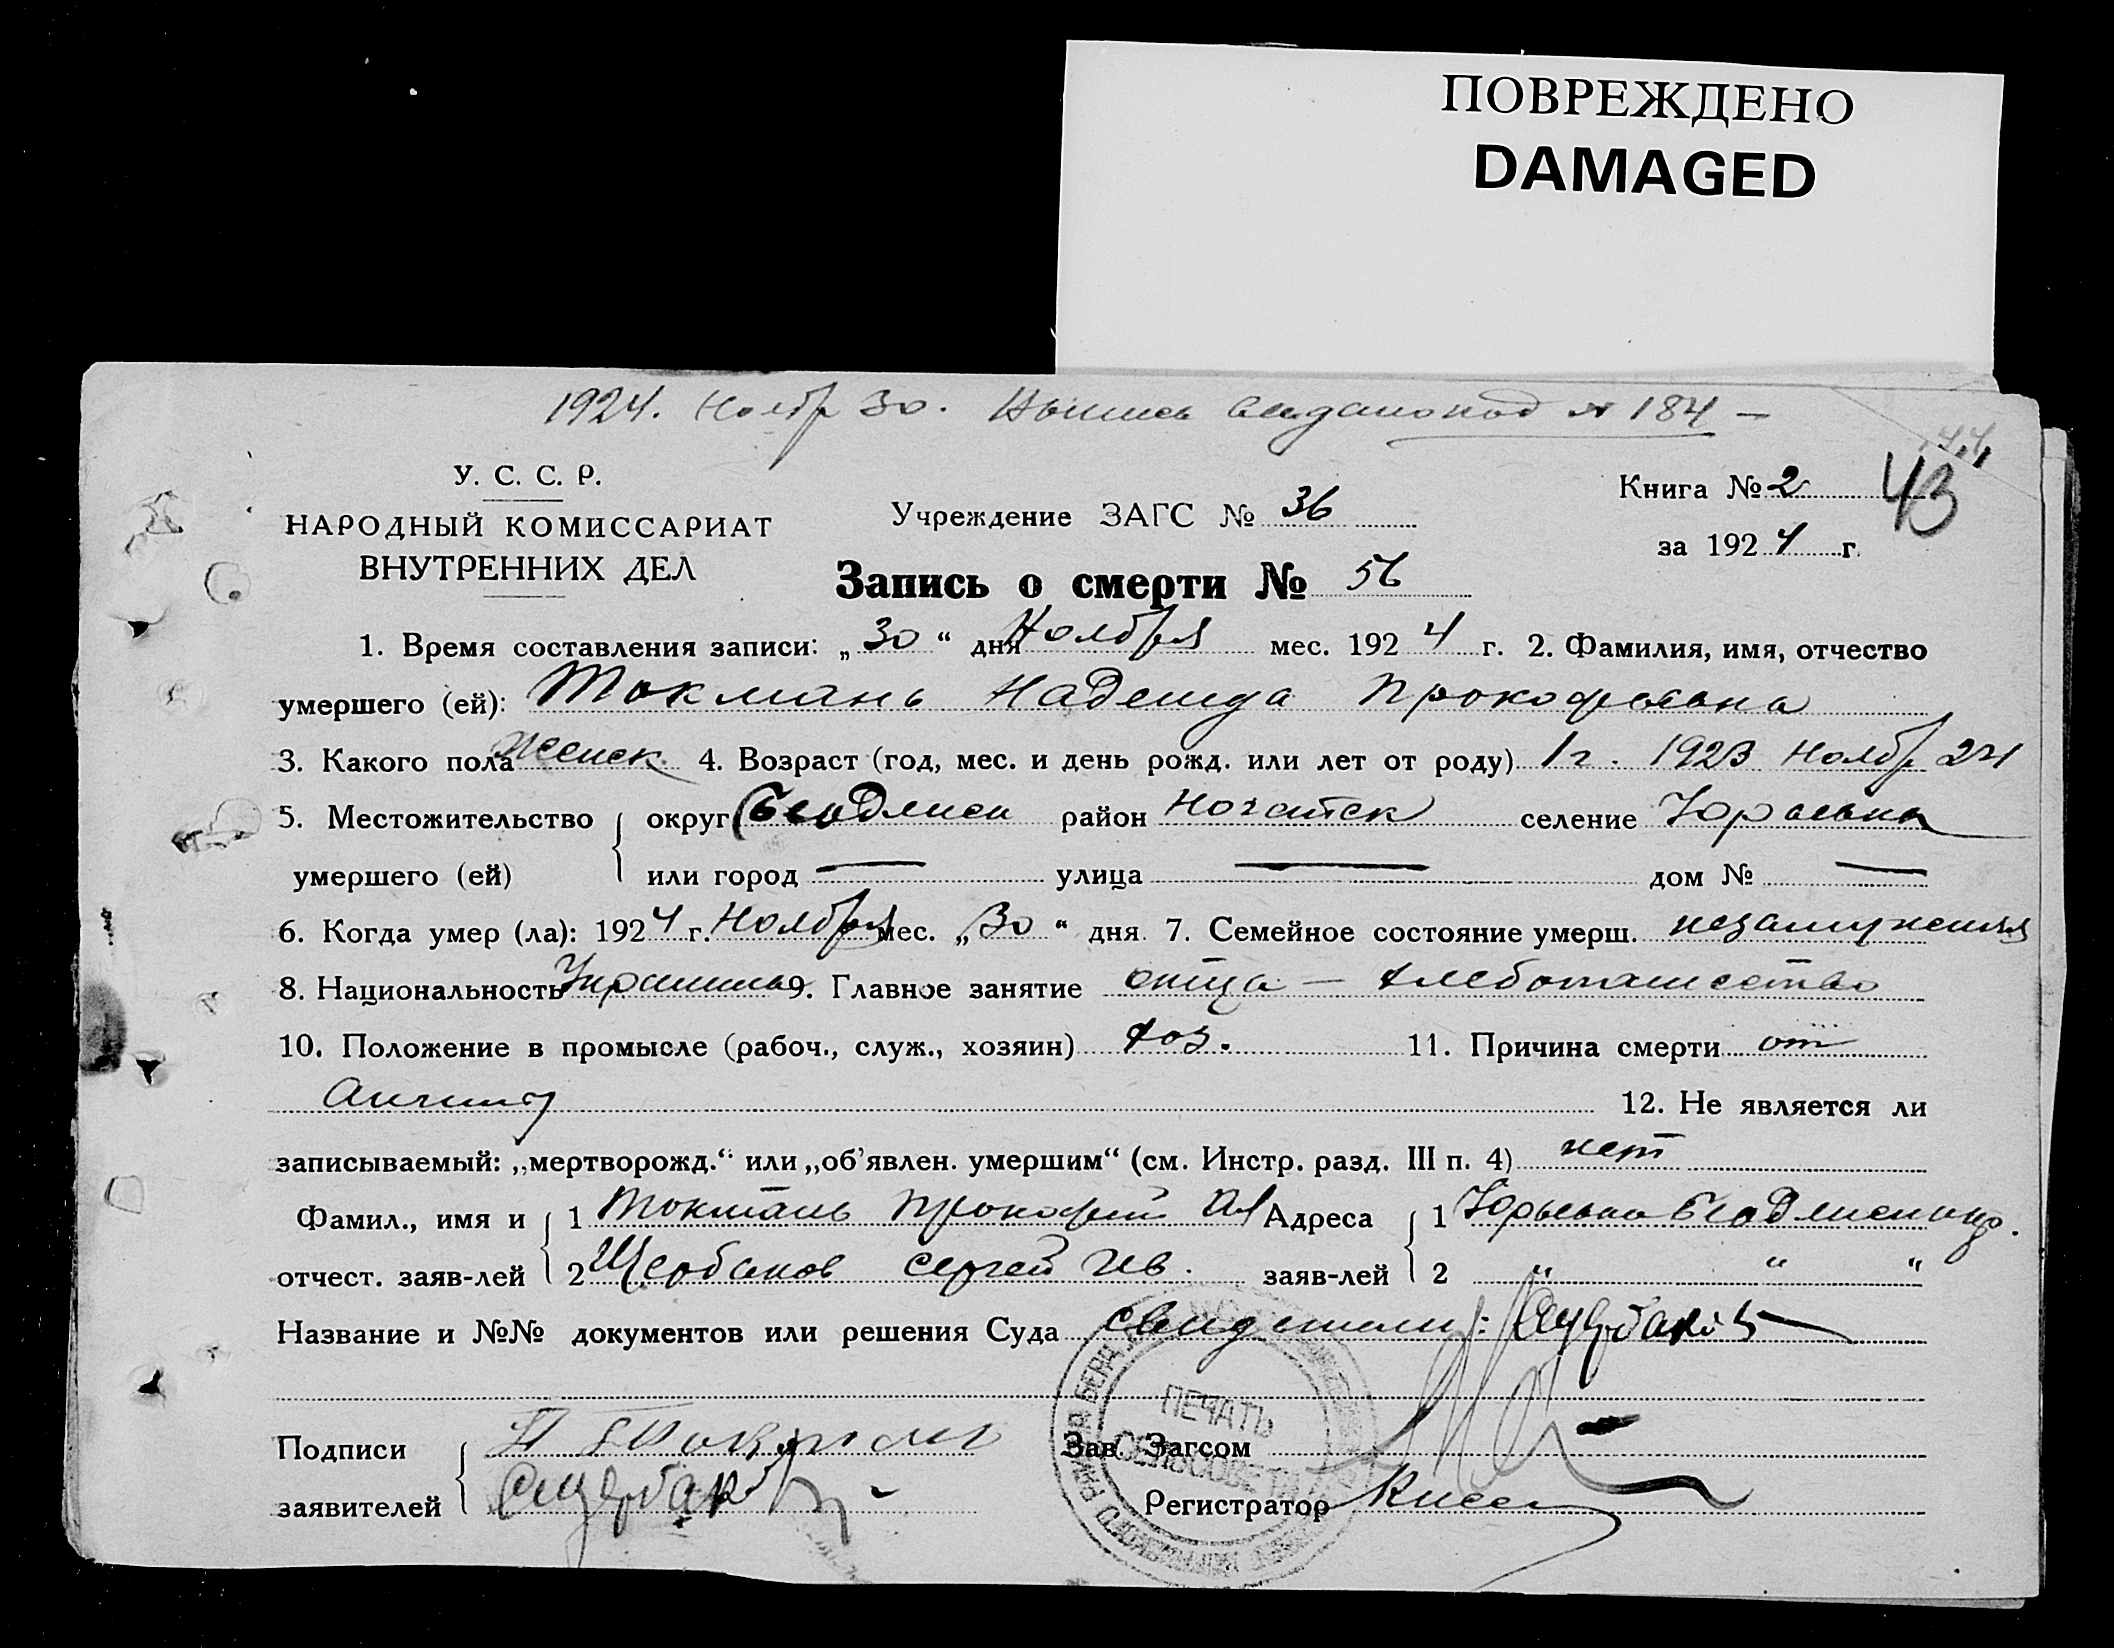 ПОВРЕЖДЕНО
DAMAGED
1924. Ноябр 30. Выпись выдано под № 184 —
44
43
У. С. С. Р.
НАРОДНЫЙ КОМИССАРИАТ
ВНУТРЕННИХ ДЕЛ
Учреждение ЗАГС № 36
Книга № 2
за 1924 г.
Запись о смерти № 56
1. Время составления записи: „30“ дня Ноября мес. 1924 г. 2. Фамилия, имя, отчество
умершего (ей): Токмань Надежда Прокофьевна
3. Какого пола женск. 4. Возраст (год, мес. и день рожд. или лет от роду) 1 г. 1923 Ноябр 24
5. Местожительство округ район Ногайск селение Юрьевка
умершего (ей) или город — улица — дом № —
6. Когда умер (ла): 1924 г. Ноября мес. „30“ дня. 7. Семейное состояние умерш. незамужняя
8. Национальность 9. Главное занятие отца — хлебопашество
10. Положение в промысле (рабоч., служ., хозяин) хоз. 11. Причина смерти от
12. Не является ли
записываемый: „мертворожд.“ или „об’явлен. умершим“ (см. Инстр. разд. III п. 4) нет
Фамил., имя и 1 Токмань Прокофий Адреса 1 Юрьевка
отчест. заяв-лей 2 Щербаков Сергей Ив. заяв-лей 2 “ “ “
Название и №№ документов или решения Суда свидетели: СЩербаков
Подписи П Токмань Зав. Загсом
заявителей СЩербаков Регистратор
ПЕЧАТЬ
СЕЛЬСОВЕТА